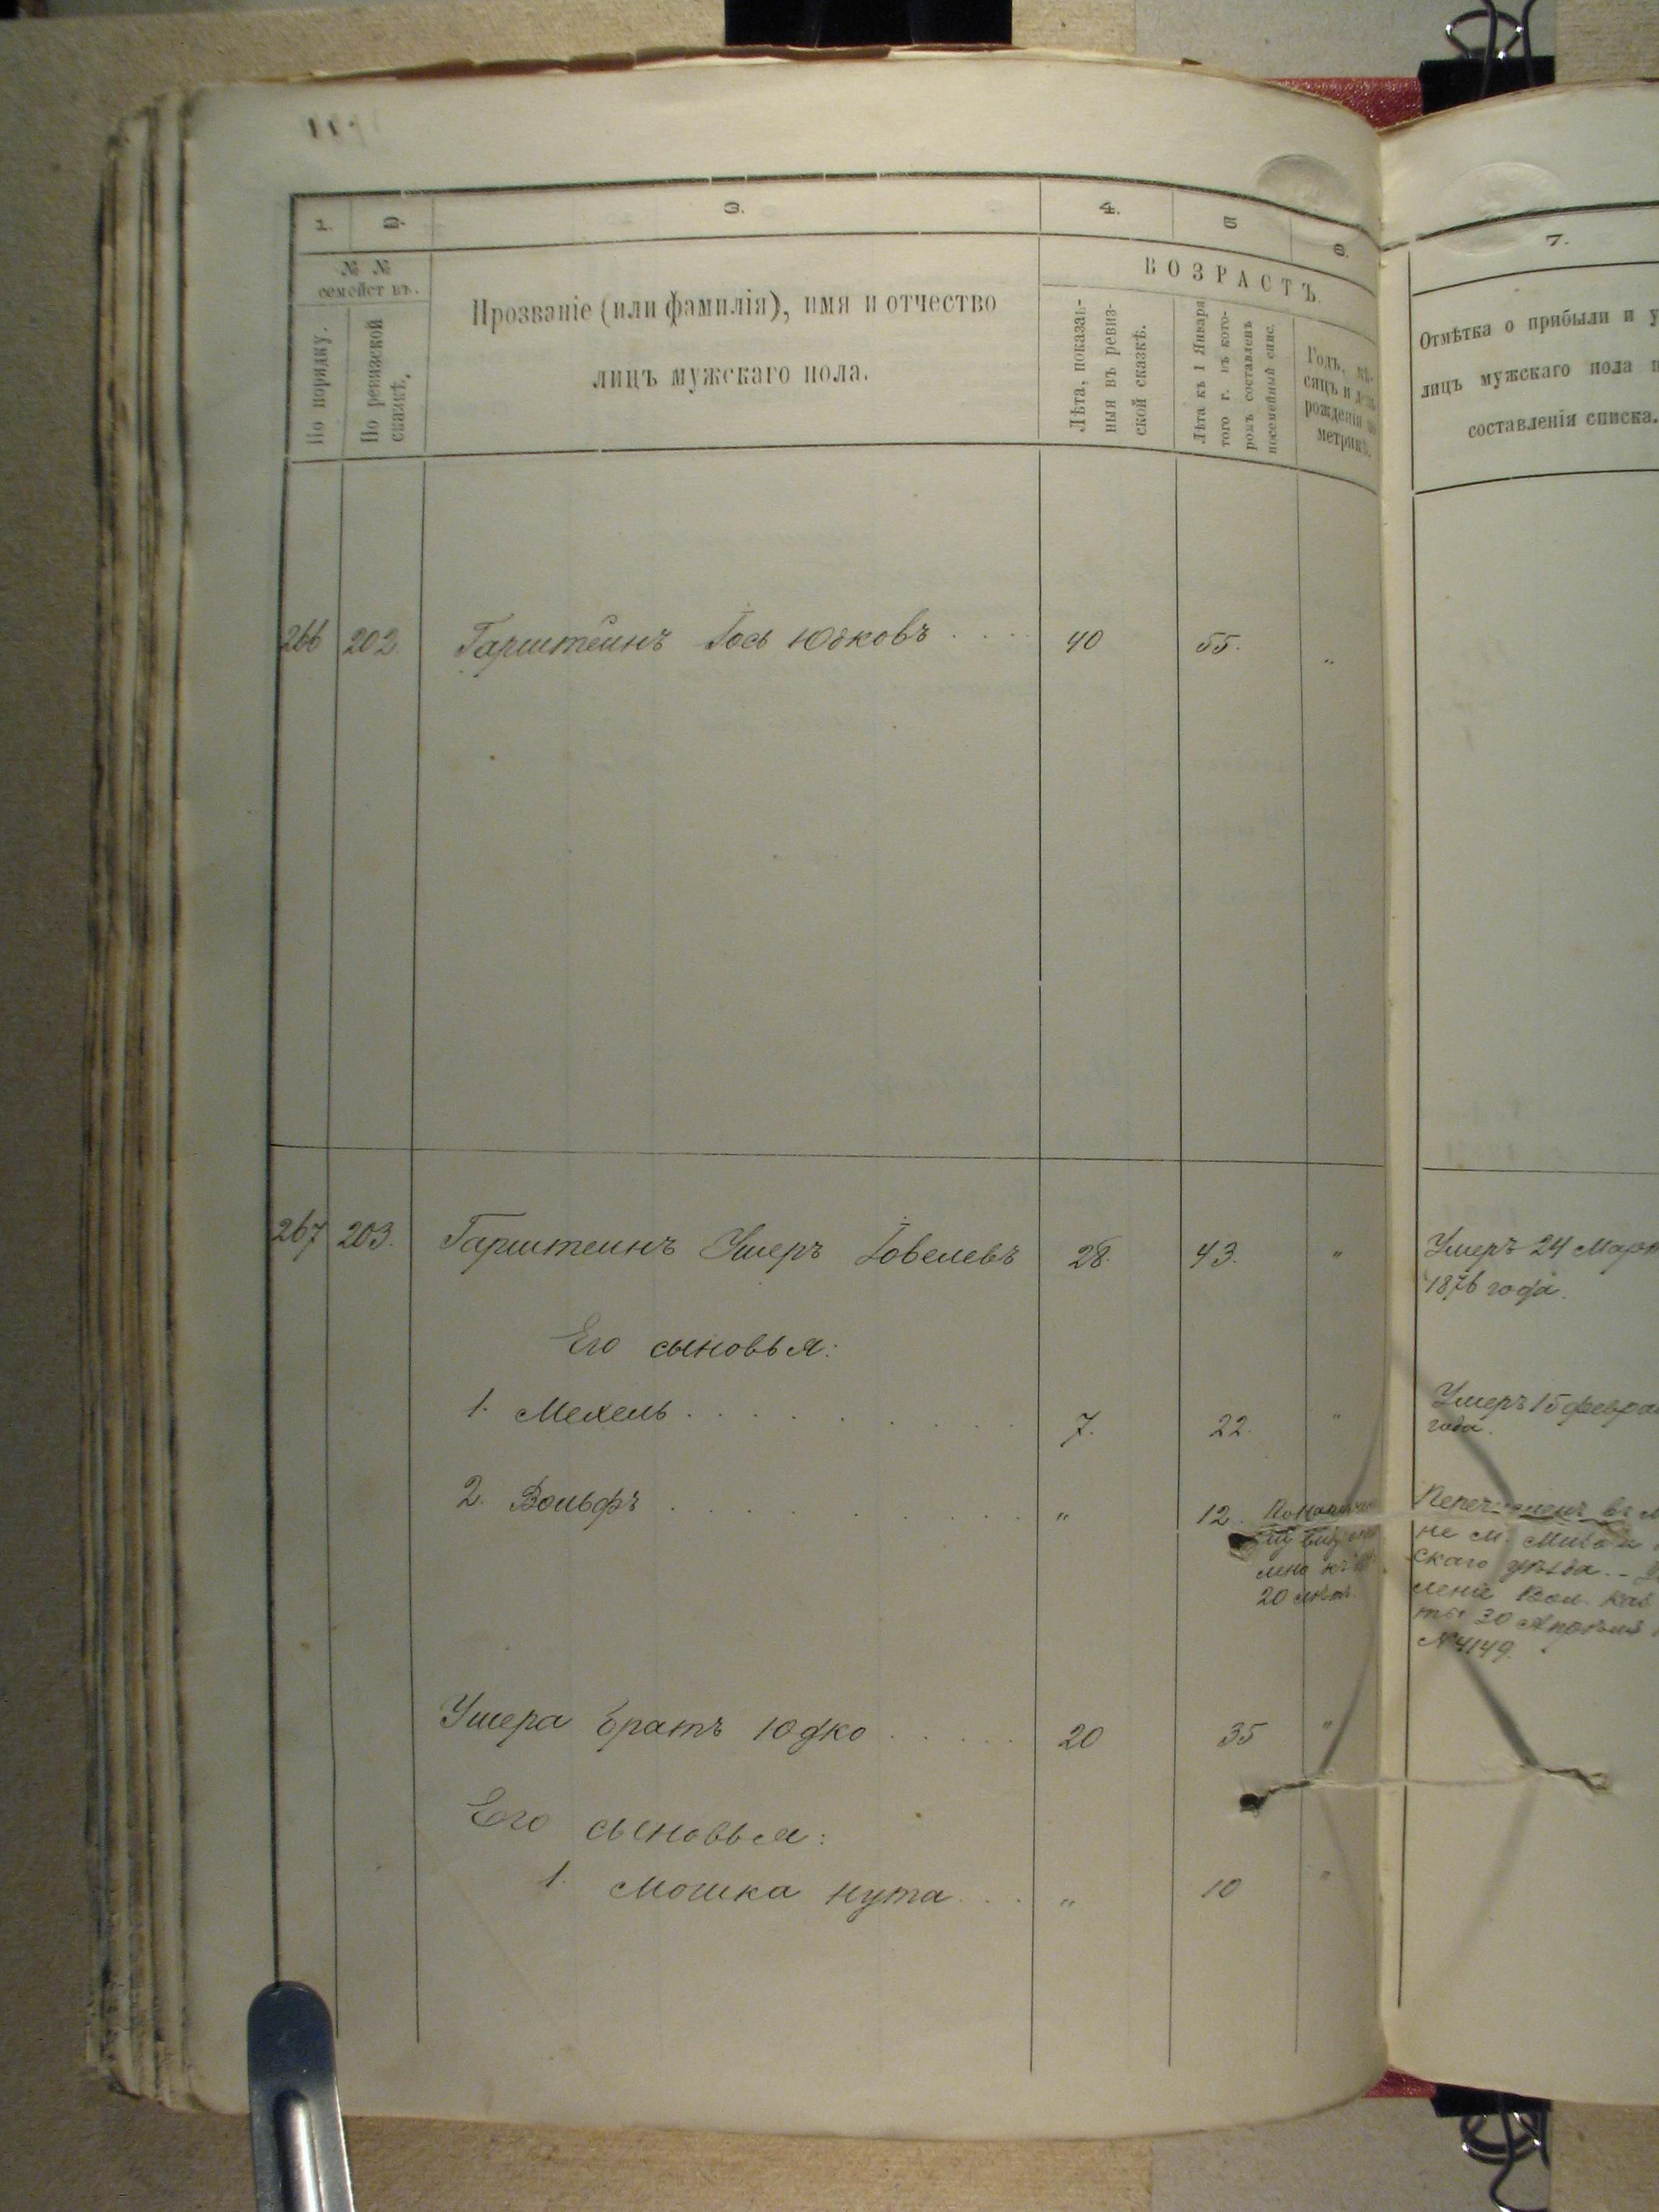 1.
2.
3.
4.
5
6.
7.
№ №
семействъ.
По порядку.
По ревизской
сказкѣ.
Прозваніе (или фамилія), имя и отчество
лицъ мужскаго пола.
ВОЗРАСТЪ.
Лѣта, показан-
ныя въ ревиз-
ской сказкѣ.
Лѣта къ 1 Января
того г. въ кото-
ромъ составленъ
посемейный спис.
Годъ, мѣ-
сяцъ и день
рожденія по
метрикѣ.
Отмѣтка о прибыли и у
лицъ мужскаго пола п
составленія списка.
266 202. Гарштейнъ Іось Юдковъ .... 40 55. "
267 203. Гарштеинъ Ушеръ Іовелевъ 28. 43. "
Умеръ 24 Март
1876 года.
Его сыновья:
1. Мехель . . . . . . . . . 7. 22. "
Умеръ 15 февра
года.
2. Вольфъ . . . . . . . . . " 12.
20 лѣтъ.
не м.
скаго уѣзда. -
леніе Вол. Каз
ты 30 Апрѣля
№ 4149.
Ушера братъ Юдко . . . . . 20 35 "
Его сыновья:
1. Мошка Нута . . . " 10 "